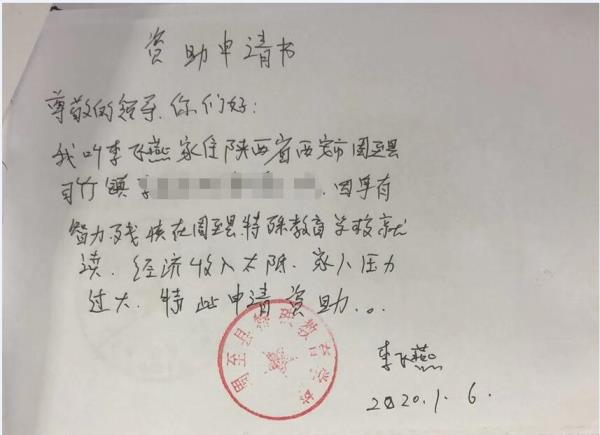 资助申请书
尊敬的领导,你们好:
我叫李飞燕家住陕西省西安市周至县
司竹镇 因孕有
智力残疾在周至县特殊教育学校就
读、经济收入太限、家人压力
过大、特此申请资助...
周至县特殊教育学校
李飞燕
2020.1.6.